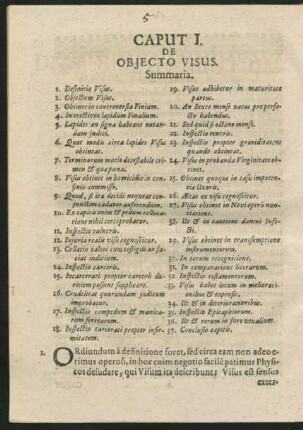 5
CAPUT I.
DE
OBJECTO VISUS.
Summaria.
1. Definitio Visus.
2. Objectum Visus.
3. Obtinet in controversia Finium.
4. In erectione lapidum Finalium.
5. Lapides an signa habeant notandum judici.
6. Quot modis circa lapides Visus obtineat.
7. Terminorum motio detestabile crimen & quæ pœna.
8. Visus obtinet in homicidio in consinio commisso.
9. Quod, si ita decidi nequeat
cadaver auferendum.
10. Ex capitis enim & pedum
nihil certi probatur.
11. Inspectio vulneris.
12. Injuria realis visu cognoscitur.
13.
judicium.
14. Inspectio carceris.
15. Incarcerati propter carceris duritiem possent supplicare.
16. Crudelitas quorundam judicum improbatur.
17. Inspectio compedum & manicarum ferrearum.
18. Inspectio carcerati propter infirmitatem.
19. Visus adhibetur in maturitate partus.
20. An sexto mense natus pro perfecto habendus.
21. Sed quid si octavo mense.
22. Inspectio ventris.
23. Inspectio propter graviditatem quando obtineat.
24. Visus in probanda Virginitate obtinet.
25. Obtinet quoque in casu impotentiæ Uxoris.
26. Ætas ex visu cognoscitur.
27. Visus obtinet in Novi operis nunciatione.
28. Ut & in cautione damni Infecti.
29. Visus obtinet in transumptione instrumentorum.
30. In eorum recognitione.
31. In comparatione literarum.
32. Inspectio testamentorum.
33. Visus habet locum in meliorationibus & expensis.
34. Ut & in deteriorationibus.
35. Inspectio Epitaphiorum.
36. Ut & rerum in foro venalium.
37. Conclusio capitis.
1. ORdiundum à definitione foret, sed circa eam non adeo erimus operosi, in hoc enim negotio facilè patimur Physicos desudare, qui Visum ita describunt: Visus est sensus
exter-